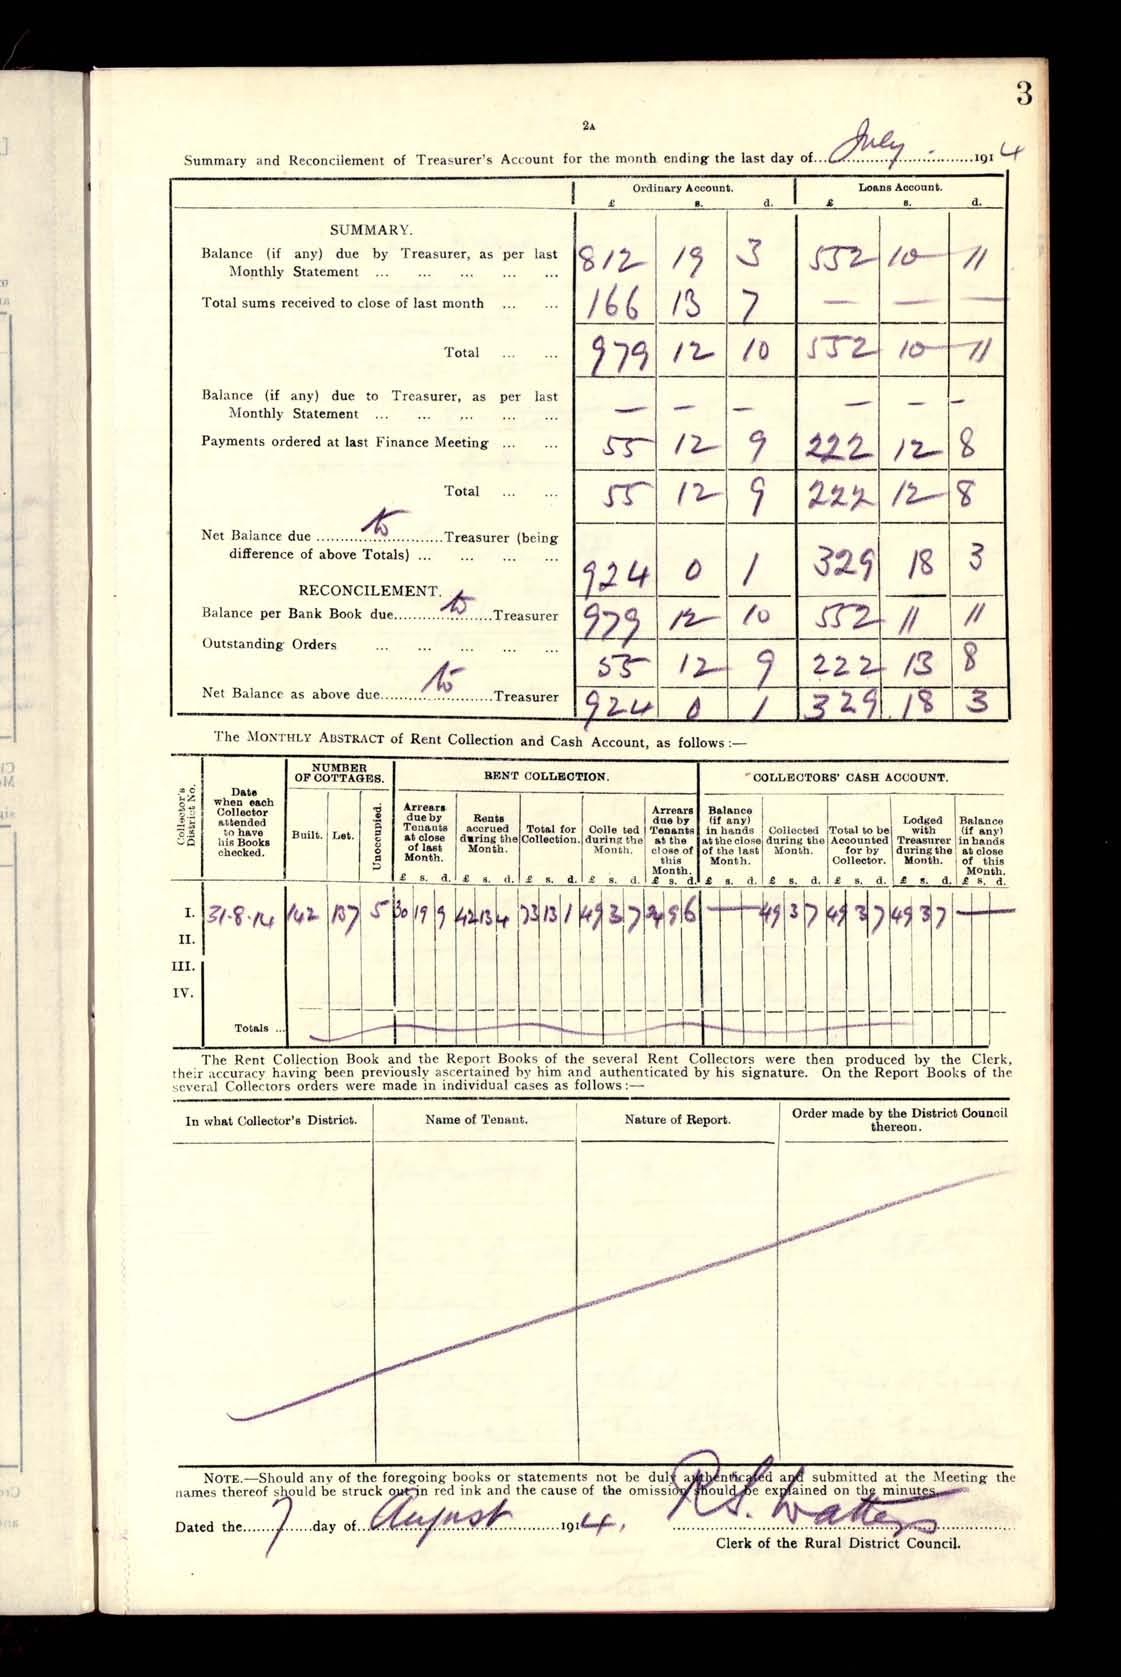 3
2A
Summary and Reconcilement of Treasurer's Account for the month ending the last day of... July ...1914
Ordinary Account. Loans Account.
£ s. d. £ s. d.
SUMMARY.
Balance (if any) due by Treasurer, as per last
Monthly Statement ... ... ... ... ... 812 19 3 552 10 11
Total sums received to close of last month ... ... 166 13 7 — — —
Total ... ... 979 12 10 552 10 11
Balance (if any) due to Treasurer, as per last
Monthly Statement ... ... ... ... ... — — — — — —
Payments ordered at last Finance Meeting ... ... 55 12 9 222 12 8
Total ... ... 55 12 9 222 12 8
Net Balance due ... to ... Treasurer (being
difference of above Totals) ... ... ... ... 924 0 1 329 18 3
RECONCILEMENT.
Balance per Bank Book due... to ...Treasurer 979 12 10 552 11 11
Outstanding Orders ... ... ... ... ... 55 12 9 222 13 8
Net Balance as above due... to ...Treasurer 924 0 1 329 18 3
The MONTHLY ABSTRACT of Rent Collection and Cash Account, as follows:—
Collector's District No.
Date when each Collector attended to have his Books checked.
NUMBER OF COTTAGES.
Built. Let. Unoccupied.
RENT COLLECTION.
Arrears due by Tenants at close of last Month. £ s. d.
Rents accrued during the Month. £ s. d.
Total for Collection. £ s. d.
Colle ted during the Month. £ s. d.
Arrears due by Tenants at the close of this Month. £ s. d.
COLLECTORS' CASH ACCOUNT.
Balance (if any) in hands at the close of the last Month. £ s. d.
Collected during the Month. £ s. d.
Total to be Accounted for by Collector. £ s. d.
Lodged with Treasurer during the Month. £ s. d.
Balance (if any) in hands at close of this Month. £ s. d.
I. 31·8·14 142 137 5 30 19 9 42 13 4 73 13 1 49 3 7 24 9 6 — 49 3 7 49 3 7 49 3 7 —
II.
III.
IV.
Totals ...
The Rent Collection Book and the Report Books of the several Rent Collectors were then produced by the Clerk,
their accuracy having been previously ascertained by him and authenticated by his signature. On the Report Books of the
several Collectors orders were made in individual cases as follows:—
In what Collector's District. Name of Tenant. Nature of Report. Order made by the District Council thereon.
NOTE.—Should any of the foregoing books or statements not be duly authenticated and submitted at the Meeting the
names thereof should be struck out in red ink and the cause of the omission should be explained on the minutes.
Dated the... 7 ...day of... August ...1914. R. S. Watters
Clerk of the Rural District Council.